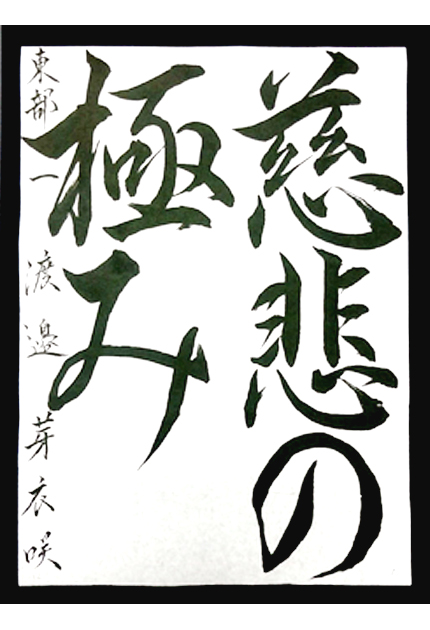 慈悲の
極み
東都一 渡邉 芽衣咲